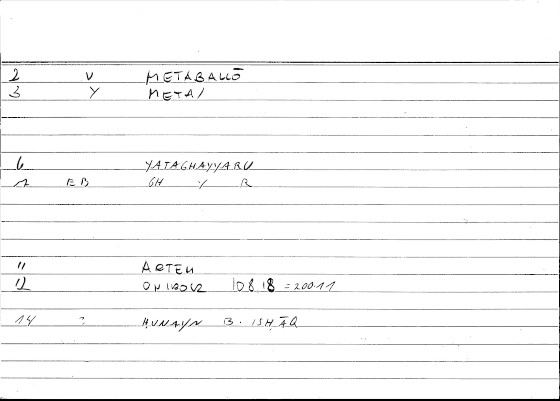 2 V METABALLŌ
3 Y META/
6 YATAGHAYYARU
7 EB GH Y R
11 ARTEM
12 ONIROCR 108.18 = 200.11
14 ? ḤUNAYN B. ISḤĀQ